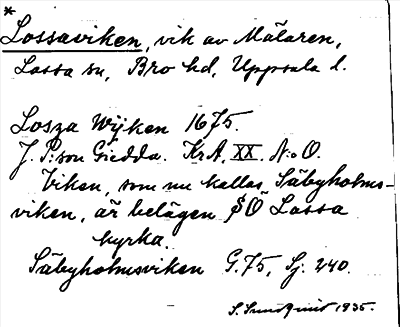 *
Lossaviken, vik av Mälaren,
Lossa sn, Bro hd, Uppsala l.
Losza Wijken 1675.
J. P:son Giedda. KrA XX. N:o O.
Viken, som nu kallas Säbyholms-
viken, är belägen SO Lossa
kyrka.
Säbyholmsviken G. 75, Sj. 240.
S. Sundquist 1935.